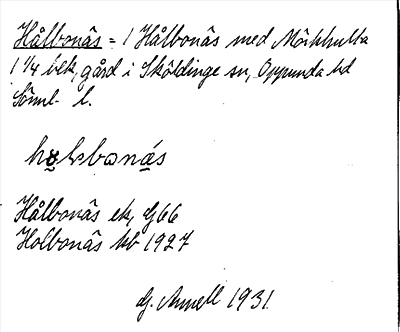 Hålbonäs = 1 Hålbonäs med Mörkhulta
1 1/4 bek, gård i Sköldinge sn, Oppunda hd
Söml l.
Hålbonäs ek, G66
Holbonäs kb 1927
G. Annell 1931.